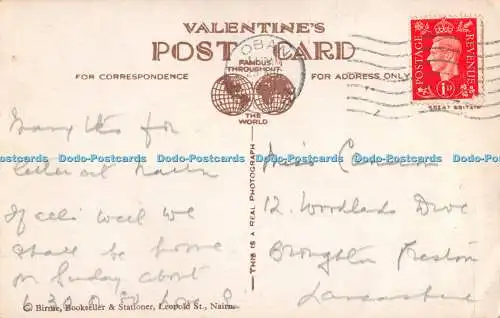 VALENTINE'S
POST CARD
FAMOUS THROUGHOUT
THE WORLD
FOR CORRESPONDENCE
FOR ADDRESS ONLY
OBAN
POSTAGE REVENUE
1D
GREAT BRITAIN
THIS IS A REAL PHOTOGRAPH
Many tks for
letter at Nairn
If all's well we
shall be home
on Sunday about
6.30
Miss
12, Woodlands Drive
Broughton Preston
Lancashire
© Birnie, Bookseller & Stationer, Leopold St., Nairn.
Dodo-Postcards Dodo-Postcards Dodo-Postcards Dodo-Postcards Dodo-Postcards